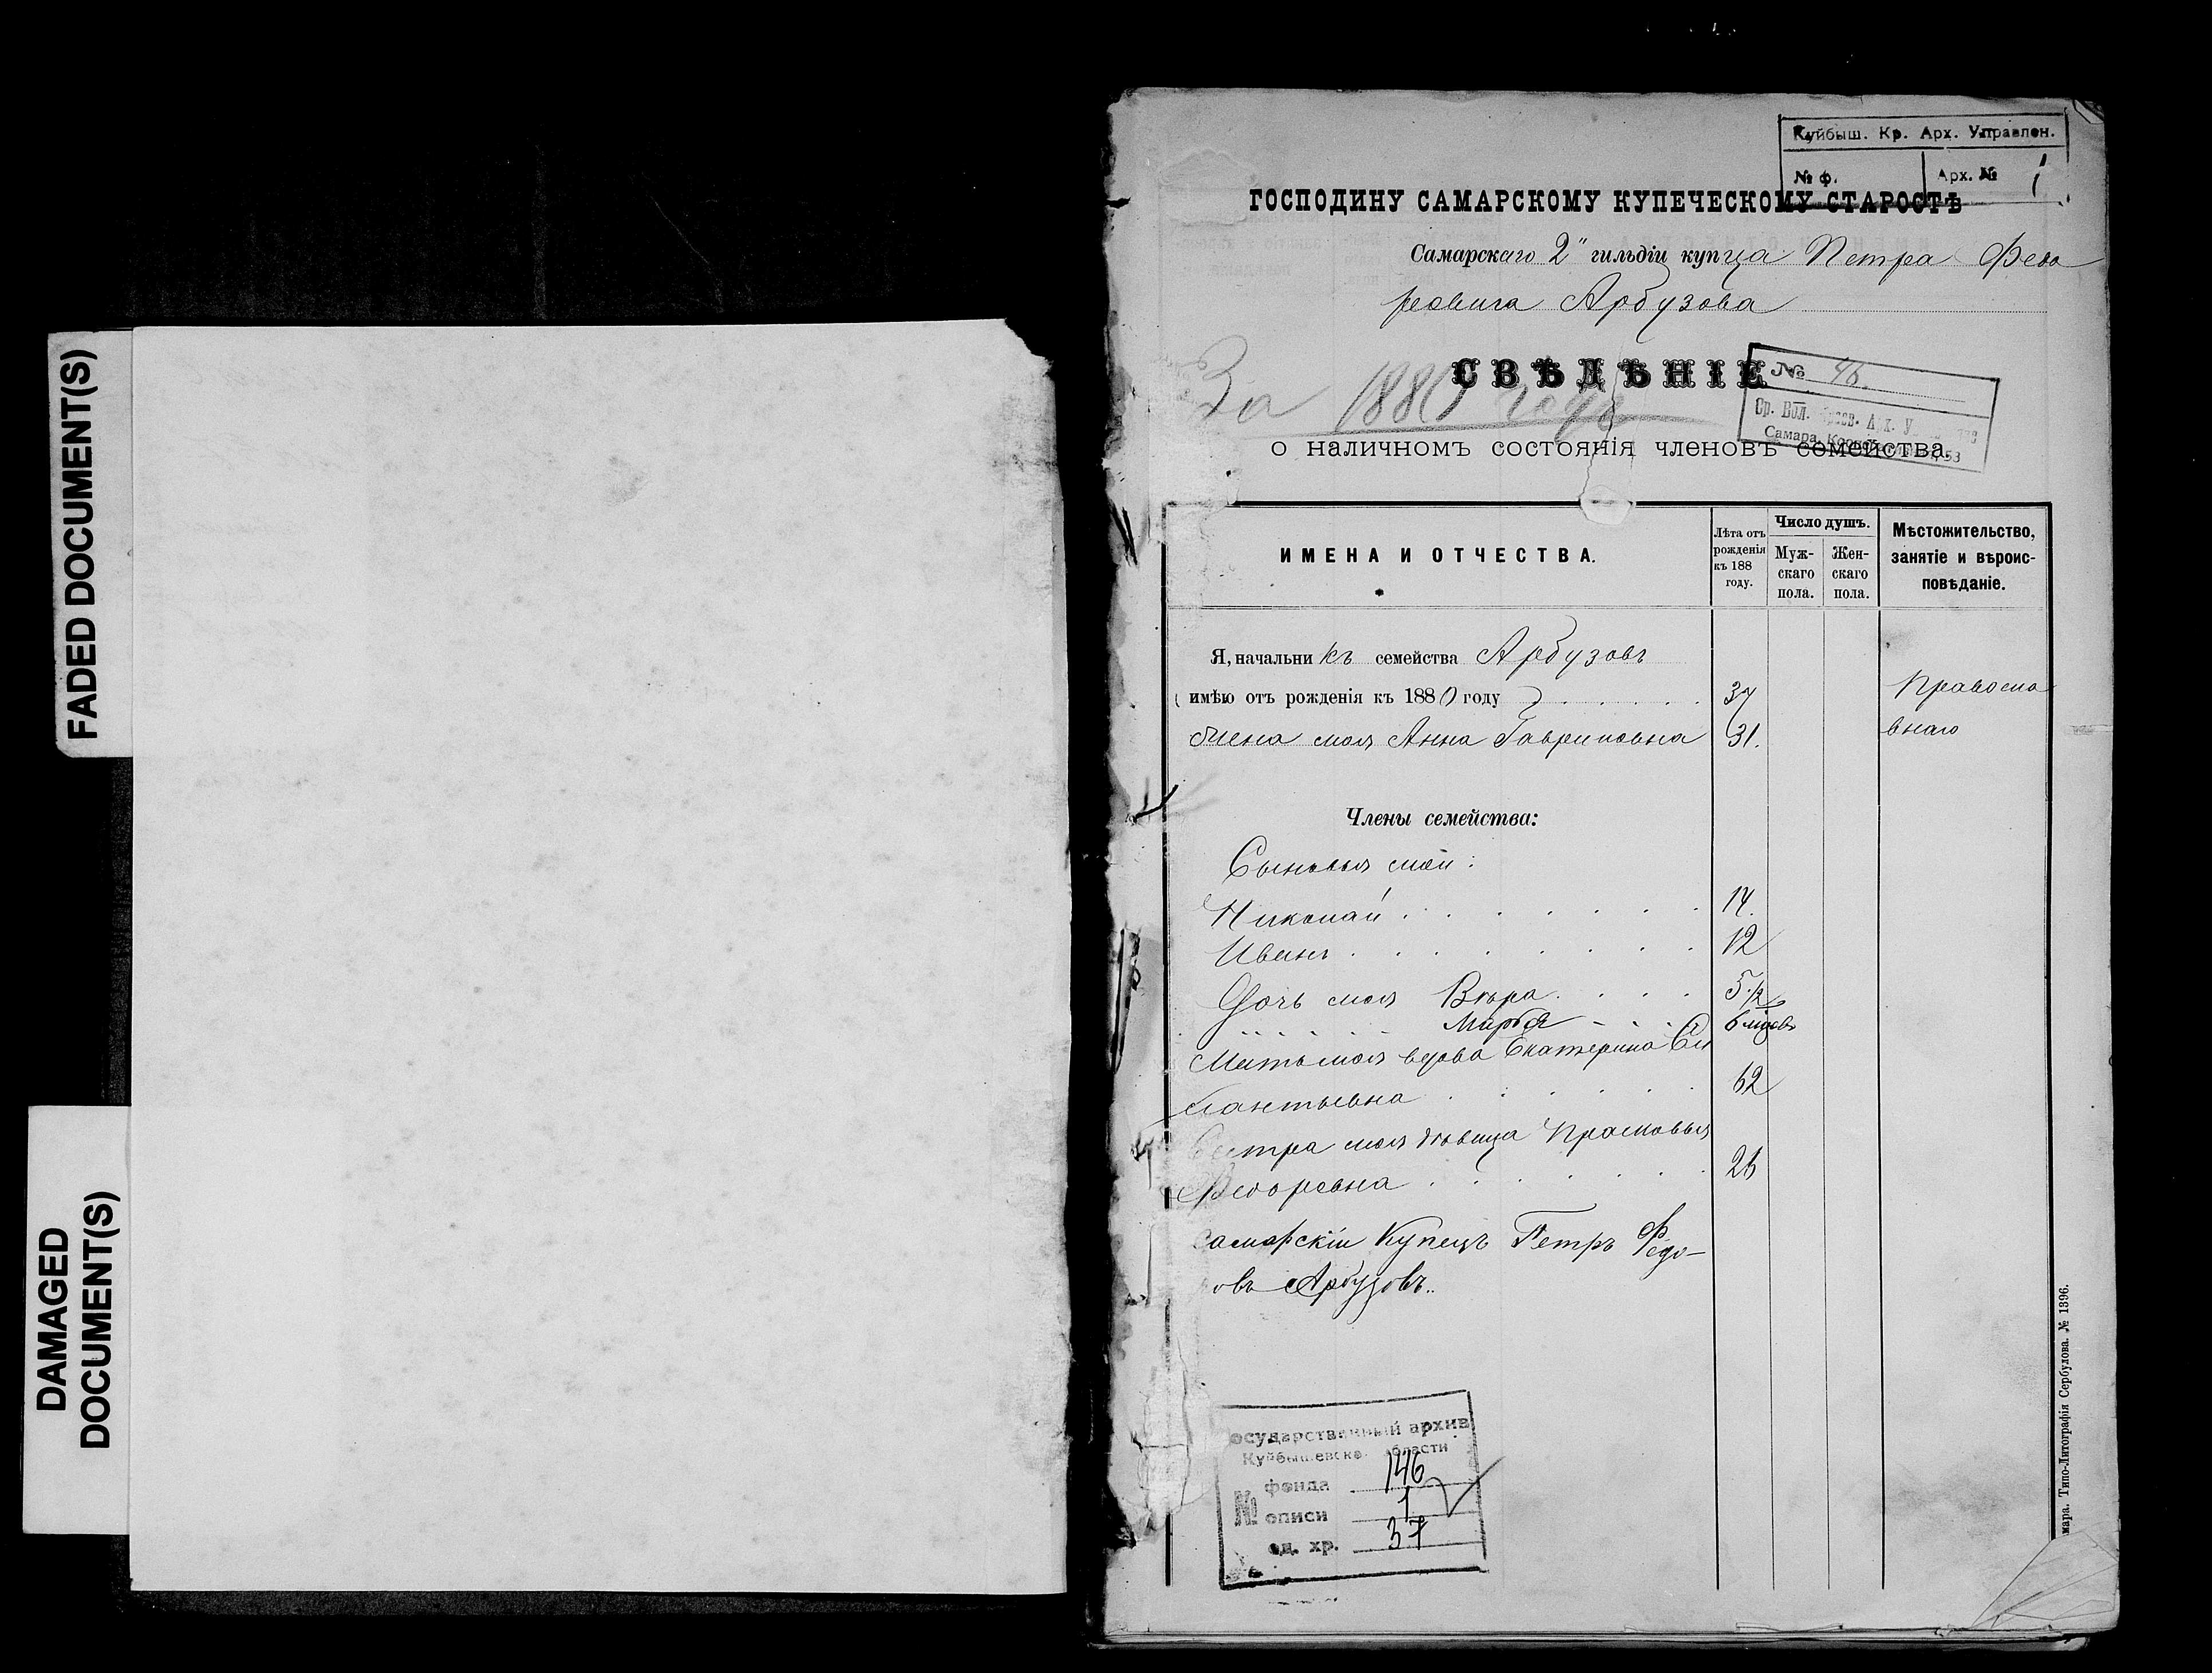 FADED DOCUMENT(S)
DAMAGED
DOCUMENT(S)
Куйбыш. Кр. Арх. Управлен.
№ ф. Арх. № 1
ГОСПОДИНУ САМАРСКОМУ КУПЕЧЕСКОМУ СТАРОСТѢ
Самарскаго 2й гильдіи купца Петра Федо
ровича Арбузова
СВѢДѢНІЕ
За 1880 годъ
№ 46.
Ср. Вол. Краев. Арх. У
Самара,
53
о наличномъ состоянія членовъ семейства.
ИМЕНА И ОТЧЕСТВА.
Лѣта отъ рожденія къ 188 году.
Число душъ.
Мужскаго пола.
Женскаго пола.
Мѣстожительство, занятіе и вѣроисповѣданіе.
Я, начальникъ семейства Арбузовъ
имѣю отъ рожденія къ 1880 году 37 Правосла
жена моя Анна Гавриловна 31. внаго
Члены семейства:
Сыновья мои:
Николай 14.
Иванъ 12
Дочь моя Вѣра 5 1/2
Марья 6 мѣсяцовъ
Мать моя вдова Екатерина
62
Сестра моя дѣвица Прасковья
Федоровна 26
Самарскій Купецъ Петръ Федо-
овъ Арбузовъ..
осударственный архив
Куйбышевско области
№ фонда 146
описи 1
ед. хр. 37
мара. Типо-Литографія Сербулова. № 1396.